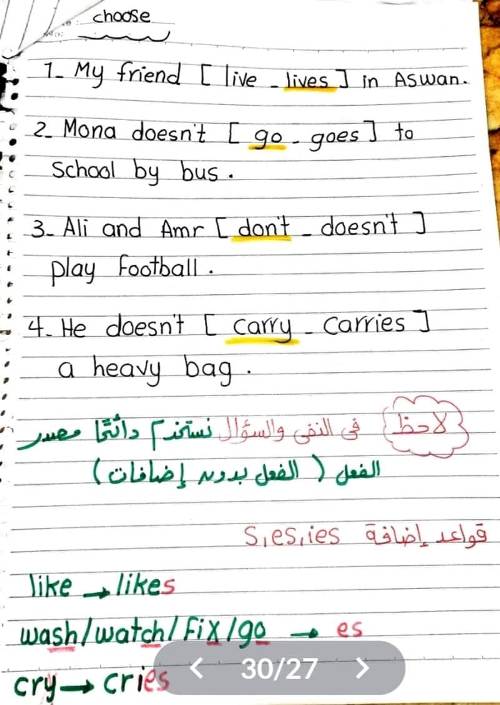 choose
1- My friend [ live - lives ] in Aswan.
2- Mona doesn't [ go - goes ] to
School by bus .
3- Ali and Amr [ don't - doesn't ]
play Football .
4- He doesn't [ carry - carries ]
a heavy bag .
لاحظ في النفى والسؤال نستخدم دائمًا مصدر
الفعل ( الفعل بدون إضافات )
قواعد إضافة s, es, ies
like → likes
wash/watch/Fix/go → es
cry → cries
< 30/27 >